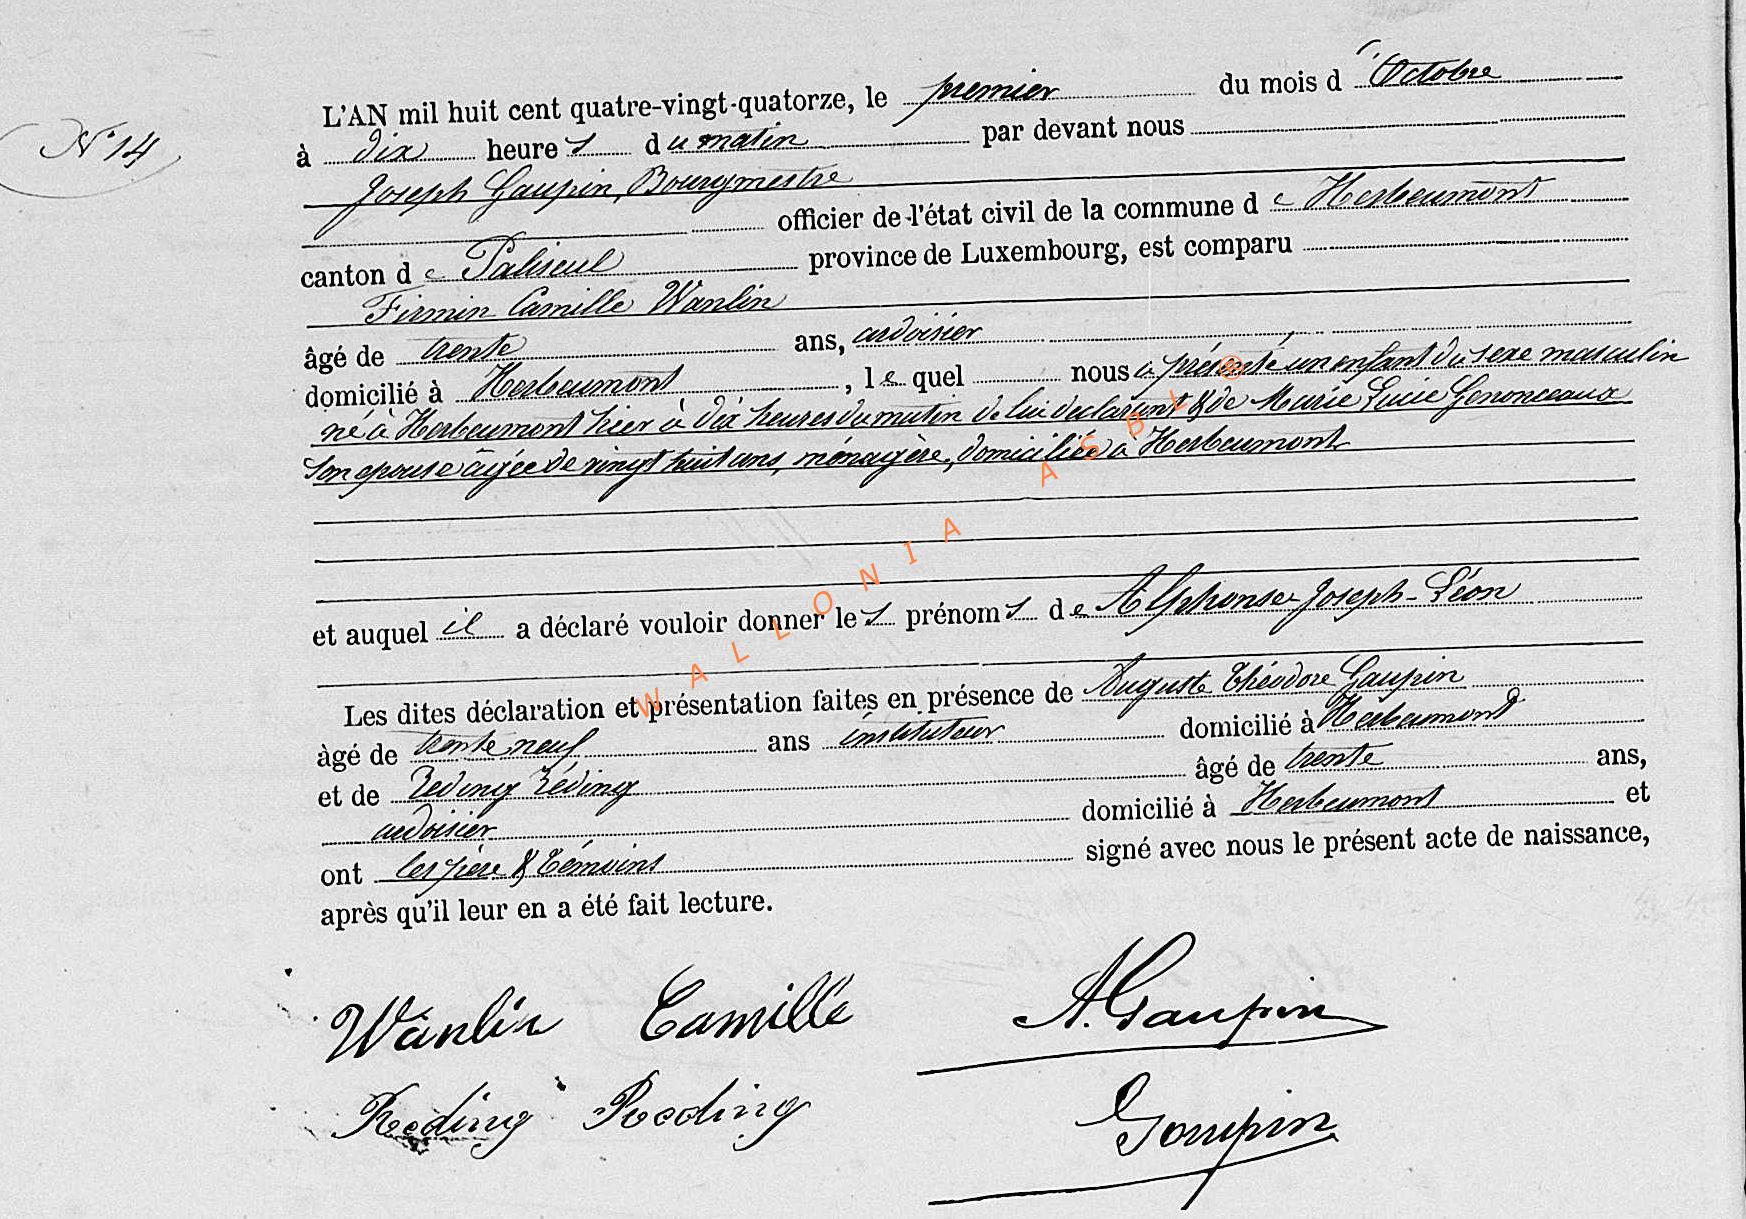 N° 14
L'AN mil huit cent quatre-vingt-quatorze, le premier du mois d'Octobre
à dix heures du matin par devant nous
Joseph Gaupin, Bourgmestre
officier de l'état civil de la commune de Herbeumont
canton de Paliseul province de Luxembourg, est comparu
Firmin Camille Wanlin
âgé de trente ans, ardoisier
domicilié à Herbeumont, lequel nous a présenté un enfant du sexe masculin
né à Herbeumont hier à dix heures du matin de lui déclarant & de Marie Lucie Genonceaux
son epouse âgée de vingt huit ans, ménagère, domiciliée à Herbeumont
et auquel il a déclaré vouloir donner les prénoms de Alphonse Joseph-Léon
Les dites déclaration et présentation faites en présence de Auguste Théodore Gaupin
âgé de trente neuf ans instituteur domicilié à Herbeumont
et de Reding Réding âgé de trente ans,
ardoisier domicilié à Herbeumont et
ont les père & témoins signé avec nous le présent acte de naissance,
après qu'il leur en a été fait lecture.
Wanlin Camille A. Gaupin
Reding Reding Gaupin
WALLONIA ASBL ®